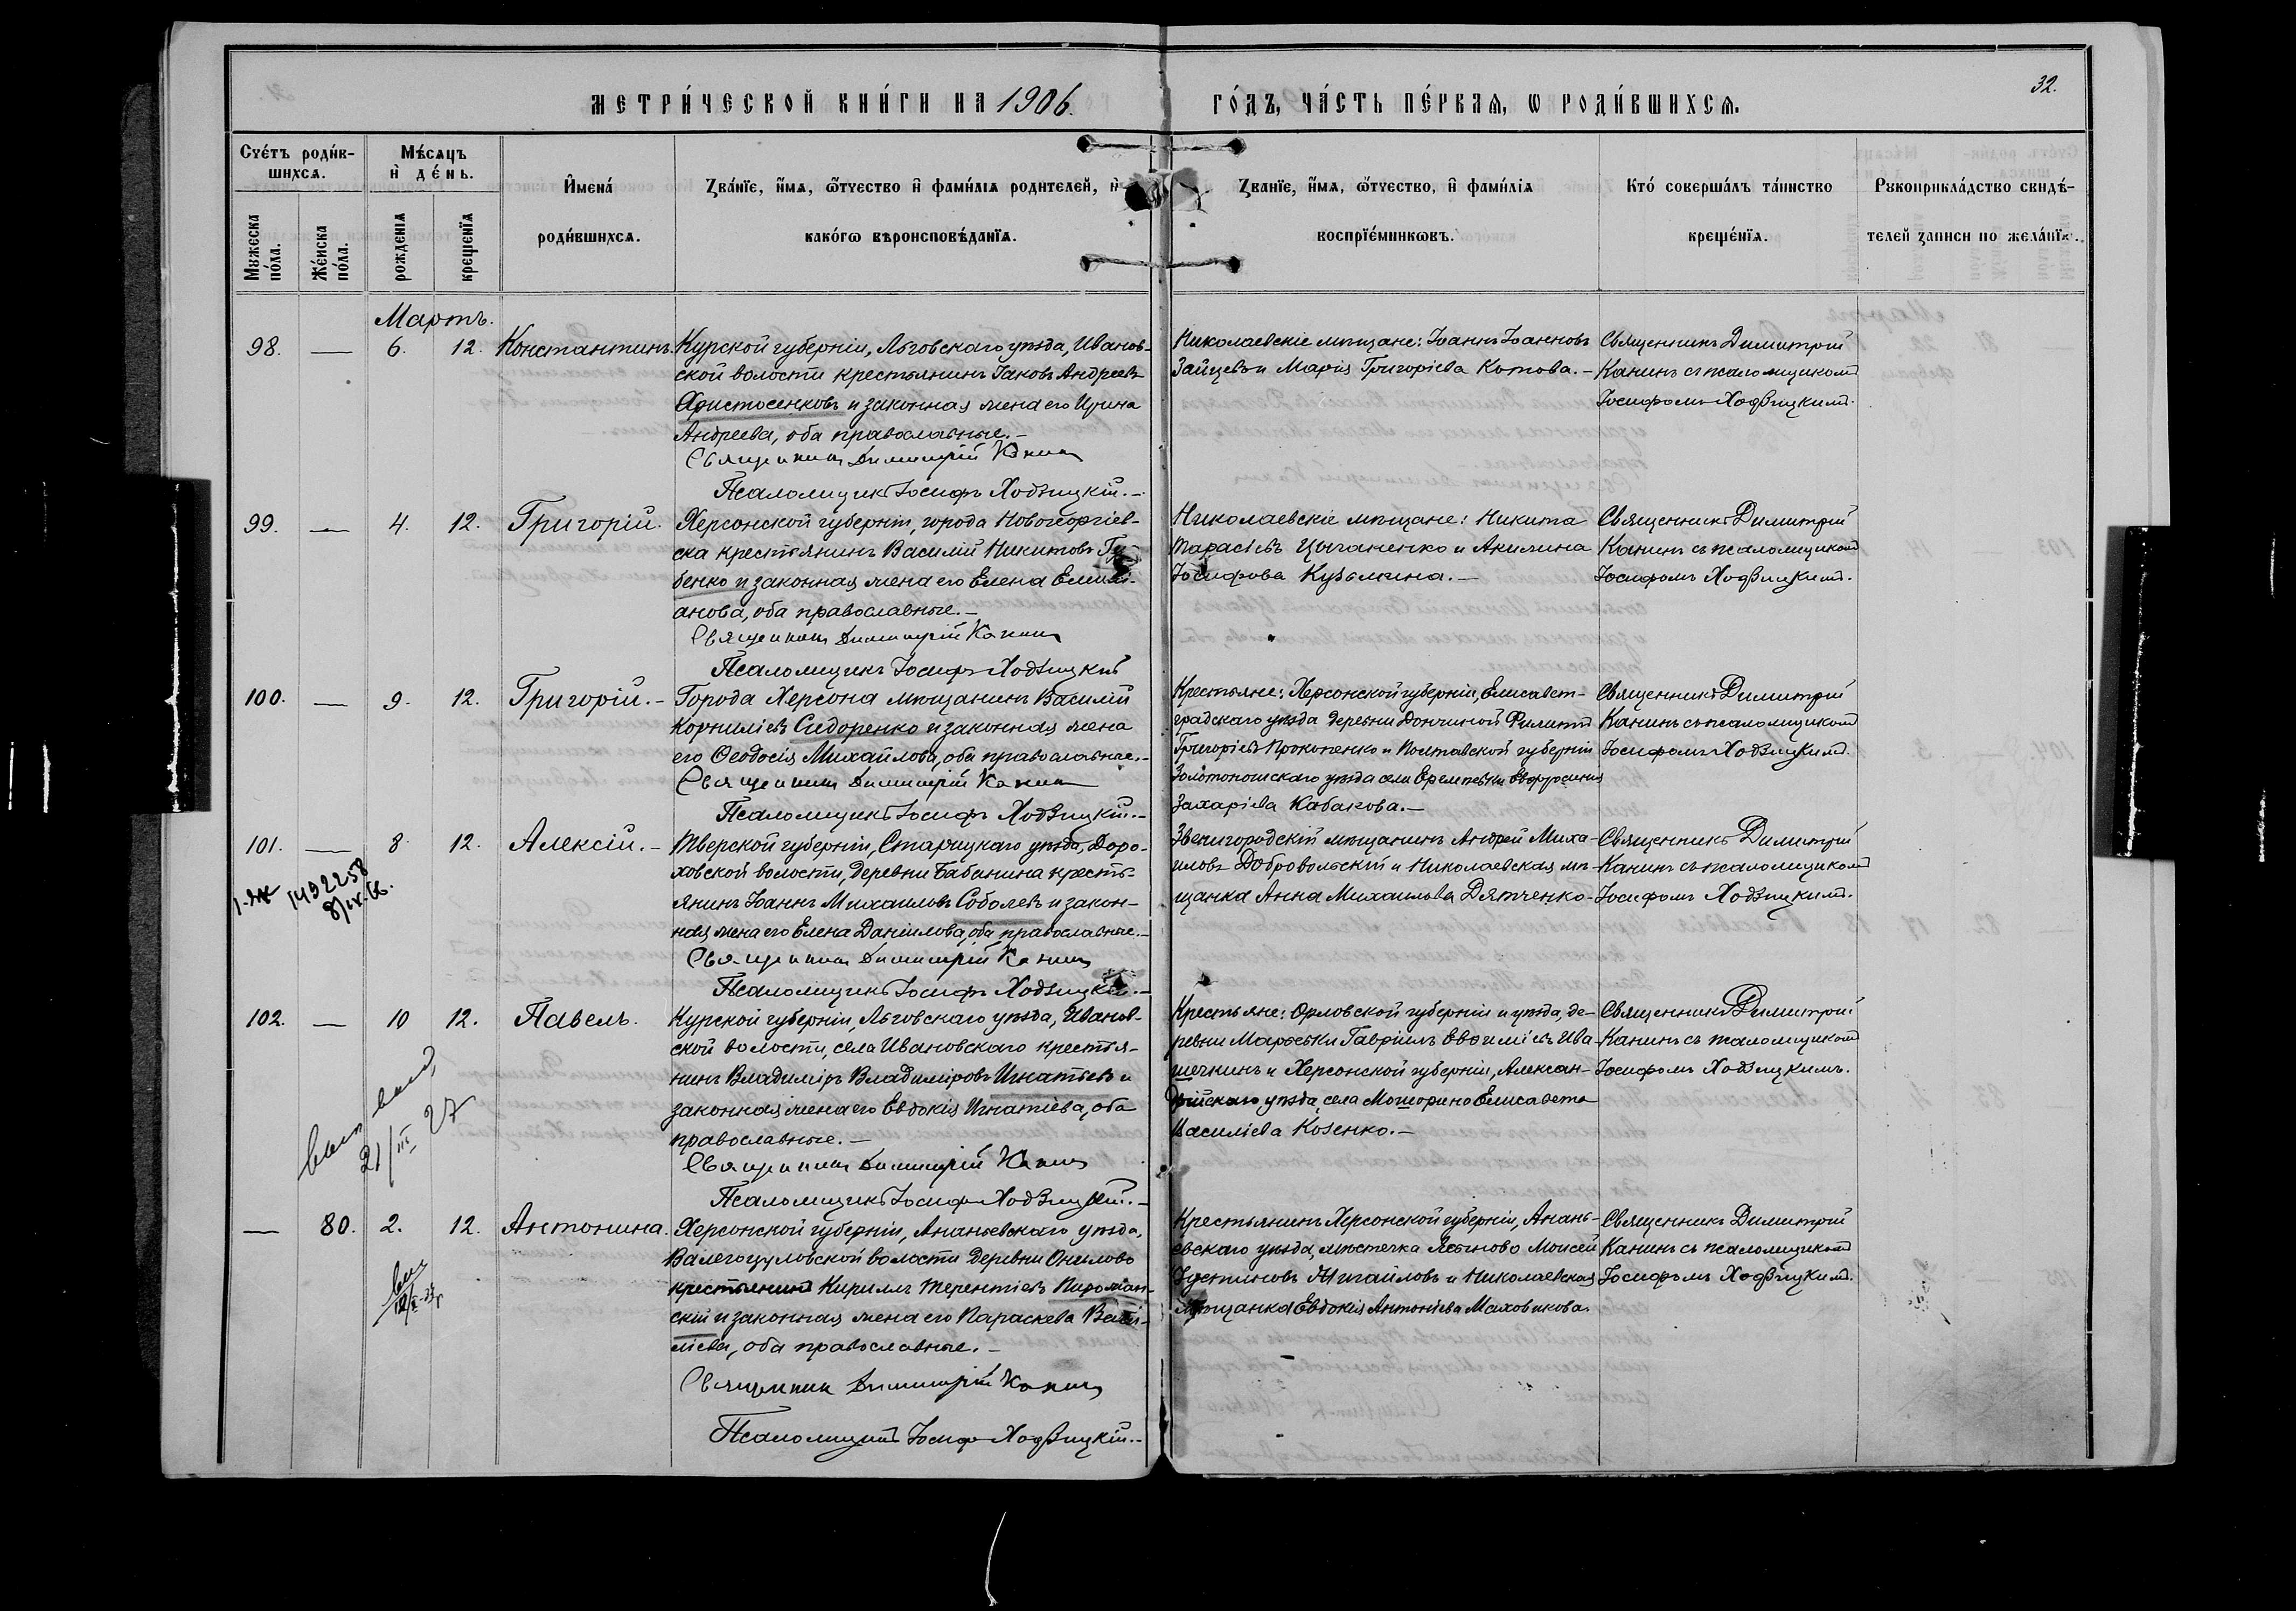 МЕТРИ́ЧЕСКОЙ КНИ́ГИ НА 1906.
ГО́ДЪ, ЧА́СТЬ ПЕ́РВАЯ, Ѡ РОДИ́ВШИХСЯ.
32.
Сче́тъ роди́в-
шихся.
Мѣ́сяцъ
и де́нь.
Мужеска по́ла.
Же́нска по́ла.
рожденія
крещенія
Имена́
роди́вшихся.
Зва́ніе, и́мя, ѻ҆́тчество и фами́лія родителей, и
како́гѡ вѣроисповѣ́данія.
Зва́ніе, и́мя, ѻ҆́тчество, и фами́лія
воспріе́мниковъ.
Кто́ соверша́лъ та́инство
креще́нія.
Рукоприкла́дство свидѣ́-
телей записи по жела́нію.
Мартъ.
98. — 6. 12. Константинъ.
Курской губерніи, Льговскаго уѣзда, Иванов-
ской волости крестьянинъ Іаковъ Андреевъ
Христосенковъ и законная жена его Ирина
Андреева, оба православные. –
Священникъ Димитрій Канинъ
Псаломщикъ Іосифъ Ходзицкій. –
Николаевскіе мѣщане: Іоаннъ Іоанновъ
Зайцевъ и Марія Григоріева Котова. –
Священникъ Димитрій
Канинъ съ псаломщикомъ
Іосифомъ Ходзицкимъ.
99. — 4. 12. Григорій.
Херсонской губерніи, города Новогеоргіев-
ска крестьянинъ Василій Никитовъ
бенко и законная жена его Елена Емили-
анова, оба православные. –
Священникъ Димитрій Канинъ
Псаломщикъ Іосифъ Ходзицкій
Николаевскіе мѣщане: Никита
Тарасіевъ Цыганенко и Акилина
Іосифова Кузьмина. –
Священникъ Димитрій
Канинъ съ псаломщикомъ
Іосифомъ Ходзицкимъ.
100. — 9. 12. Григорій. –
Города Херсона мѣщанинъ Василій
Корниліевъ Сидоренко и законная жена
его Ѳеодосія Михайлова, оба православные. –
Священникъ Димитрій Канинъ
Псаломщикъ Іосифъ Ходзицкій. –
Крестьяне: Херсонской губерніи, Елисавет-
градскаго уѣзда деревни Дончиной Филиппъ
Григоріевъ Прокопенко и Полтавской губерніи
Золотоношскаго уѣзда села Еремѣевки Евфросинія
Захаріева Кабакова. –
Священникъ Димитрій
Канинъ съ псаломщикомъ
Іосифомъ Ходзицкимъ.
101. — 8. 12. Алексій. –
1432258
8/IX.66.
Тверской губерніи, Старицкаго уѣзда, Доро-
ховской волости, деревни Бабинина кресть-
янинъ Іоаннъ Михаиловъ Соболевъ и закон-
ная жена его Елена Даніилова, оба православные. –
Священникъ Димитрій Канинъ
Псаломщикъ Іосифъ Ходзицкій. –
Звенигородскій мѣщанинъ Андрей Миха-
иловъ Добровольскій и Николаевская мѣ-
щанка Анна Михаилова Дятченко. –
Священникъ Димитрій
Канинъ съ псаломщикомъ
Іосифомъ Ходзицкимъ.
102. — 10 12. Павелъ.
21/III 27
Курской губерніи, Льговскаго уѣзда, Иванов-
ской волости, села Ивановскаго крестья-
нинъ Владиміръ Владиміровъ Игнатьевъ и
законная жена его Евдокія Игнатіева, оба
православные. –
Священникъ Димитрій Канинъ
Псаломщикъ Іосифъ Ходзицкій. –
Крестьяне: Орловской губерніи и уѣзда, де-
ревни Гавріилъ Евѳиміевъ Ива-
шечкинъ и Херсонской губерніи, Алексан-
дрійскаго уѣзда, села Мошорино Елисавета
Василіева Козенко. –
Священникъ Димитрій
Канинъ съ псаломщикомъ
Іосифомъ Ходзицкимъ.
— 80. 2. 12. Антонина.
Херсонской губерніи, Ананьевскаго уѣзда,
Валегоцуловской волости деревни Онилово
крестьянинъ Кириллъ Терентіевъ
скій и законная жена его Параскева Васи-
ліева, оба православные. –
Священникъ Димитрій Канинъ
Псаломщикъ Іосифъ Ходзицкій. –
Крестьянинъ Херсонской губерніи, Анань-
евскаго уѣзда, мѣстечка Моисей
Іустиновъ и Николаевская
мѣщанка Евдокія Антоніева Маховикова.
Священникъ Димитрій
Канинъ съ псаломщикомъ
Іосифомъ Ходзицкимъ.